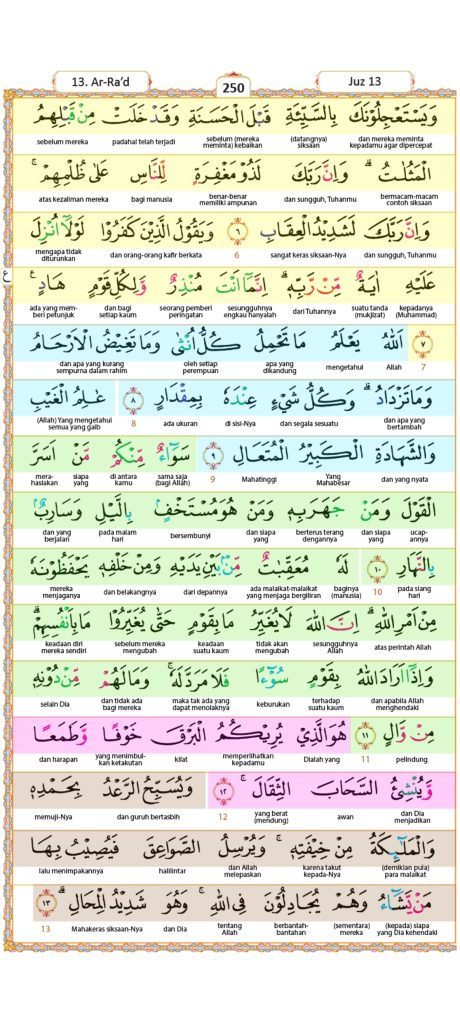 13. Ar-Ra’d 250 Juz 13
وَيَسْتَعْجِلُوْنَكَ بِالسَّيِّئَةِ قَبْلَ الْحَسَنَةِ وَقَدْ خَلَتْ مِنْ قَبْلِهِمُ
dan mereka meminta kepadamu agar dipercepat (datangnya) siksaan sebelum (mereka meminta) kebaikan padahal telah terjadi sebelum mereka
الْمَثُلٰتُۗ وَاِنَّ رَبَّكَ لَذُوْ مَغْفِرَةٍ لِّلنَّاسِ عَلٰى ظُلْمِهِمْۚ
bermacam-macam contoh siksaan dan sungguh, Tuhanmu benar-benar memiliki ampunan bagi manusia atas kezaliman mereka
وَاِنَّ رَبَّكَ لَشَدِيْدُ الْعِقَابِ ٦ وَيَقُوْلُ الَّذِيْنَ كَفَرُوْا لَوْلَآ اُنْزِلَ
dan sungguh, Tuhanmu sangat keras siksaan-Nya 6 dan orang-orang kafir berkata mengapa tidak diturunkan
ع
عَلَيْهِ اٰيَةٌ مِّنْ رَّبِّهٖۗ اِنَّمَآ اَنْتَ مُنْذِرٌ وَّلِكُلِّ قَوْمٍ هَادٍ
kepadanya (Muhammad) suatu tanda (mukjizat) dari Tuhannya sesungguhnya engkau hanyalah seorang pemberi peringatan dan bagi setiap kaum ada yang memberi petunjuk
٧ اَللّٰهُ يَعْلَمُ مَا تَحْمِلُ كُلُّ اُنْثٰى وَمَا تَغِيْضُ الْاَرْحَامُ
7 Allah mengetahui apa yang dikandung oleh setiap perempuan dan apa yang kurang sempurna dalam rahim
وَمَا تَزْدَادُۗ وَكُلُّ شَيْءٍ عِنْدَهٗ بِمِقْدَارٍ ٨ عٰلِمُ الْغَيْبِ
dan apa yang bertambah dan segala sesuatu di sisi-Nya ada ukuran 8 (Allah) Yang mengetahui semua yang gaib
وَالشَّهَادَةِ الْكَبِيْرُ الْمُتَعَالِ ٩ سَوَاۤءٌ مِّنْكُمْ مَّنْ اَسَرَّ
dan yang nyata Yang Mahabesar Mahatinggi 9 sama saja (bagi Allah) di antara kamu siapa yang merahasiakan
الْقَوْلَ وَمَنْ جَهَرَ بِهٖ وَمَنْ هُوَ مُسْتَخْفٍۢ بِالَّيْلِ وَسَارِبٌۢ
ucapannya dan siapa yang berterus terang dengannya dan siapa yang bersembunyi pada malam hari dan yang berjalan
بِالنَّهَارِ ١٠ لَهٗ مُعَقِّبٰتٌ مِّنْۢ بَيْنِ يَدَيْهِ وَمِنْ خَلْفِهٖ يَحْفَظُوْنَهٗ
pada siang hari 10 baginya (manusia) ada malaikat-malaikat yang menjaga bergiliran dari depannya dan belakangnya mereka menjaganya
مِنْ اَمْرِ اللّٰهِۗ اِنَّ اللّٰهَ لَا يُغَيِّرُ مَا بِقَوْمٍ حَتّٰى يُغَيِّرُوْا مَا بِاَنْفُسِهِمْۗ
atas perintah Allah sesungguhnya Allah tidak akan mengubah keadaan suatu kaum sebelum mereka mengubah keadaan diri mereka sendiri
وَاِذَآ اَرَادَ اللّٰهُ بِقَوْمٍ سُوْۤءًا فَلَا مَرَدَّ لَهٗۚ وَمَا لَهُمْ مِّنْ دُوْنِهٖ
dan apabila Allah menghendaki terhadap suatu kaum keburukan maka tak ada yang dapat menolaknya dan tidak ada bagi mereka selain Dia
مِنْ وَّالٍ ١١ هُوَ الَّذِيْ يُرِيْكُمُ الْبَرْقَ خَوْفًا وَّطَمَعًا
pelindung 11 Dialah yang memperlihatkan kepadamu kilat yang menimbulkan ketakutan dan harapan
وَّيُنْشِئُ السَّحَابَ الثِّقَالَۚ ١٢ وَيُسَبِّحُ الرَّعْدُ بِحَمْدِهٖ
dan Dia menjadikan awan yang berat (mendung) 12 dan guruh bertasbih memuji-Nya
وَالْمَلٰۤىِٕكَةُ مِنْ خِيْفَتِهٖۚ وَيُرْسِلُ الصَّوَاعِقَ فَيُصِيْبُ بِهَا
(demikian pula) para malaikat karena takut kepada-Nya dan Allah melepaskan halilintar lalu menimpakannya
مَنْ يَّشَاۤءُ وَهُمْ يُجَادِلُوْنَ فِى اللّٰهِۚ وَهُوَ شَدِيْدُ الْمِحَالِۗ ١٣
(kepada) siapa yang Dia kehendaki (sementara) mereka berbantah-bantahan tentang Allah dan Dia Mahakeras siksaan-Nya 13